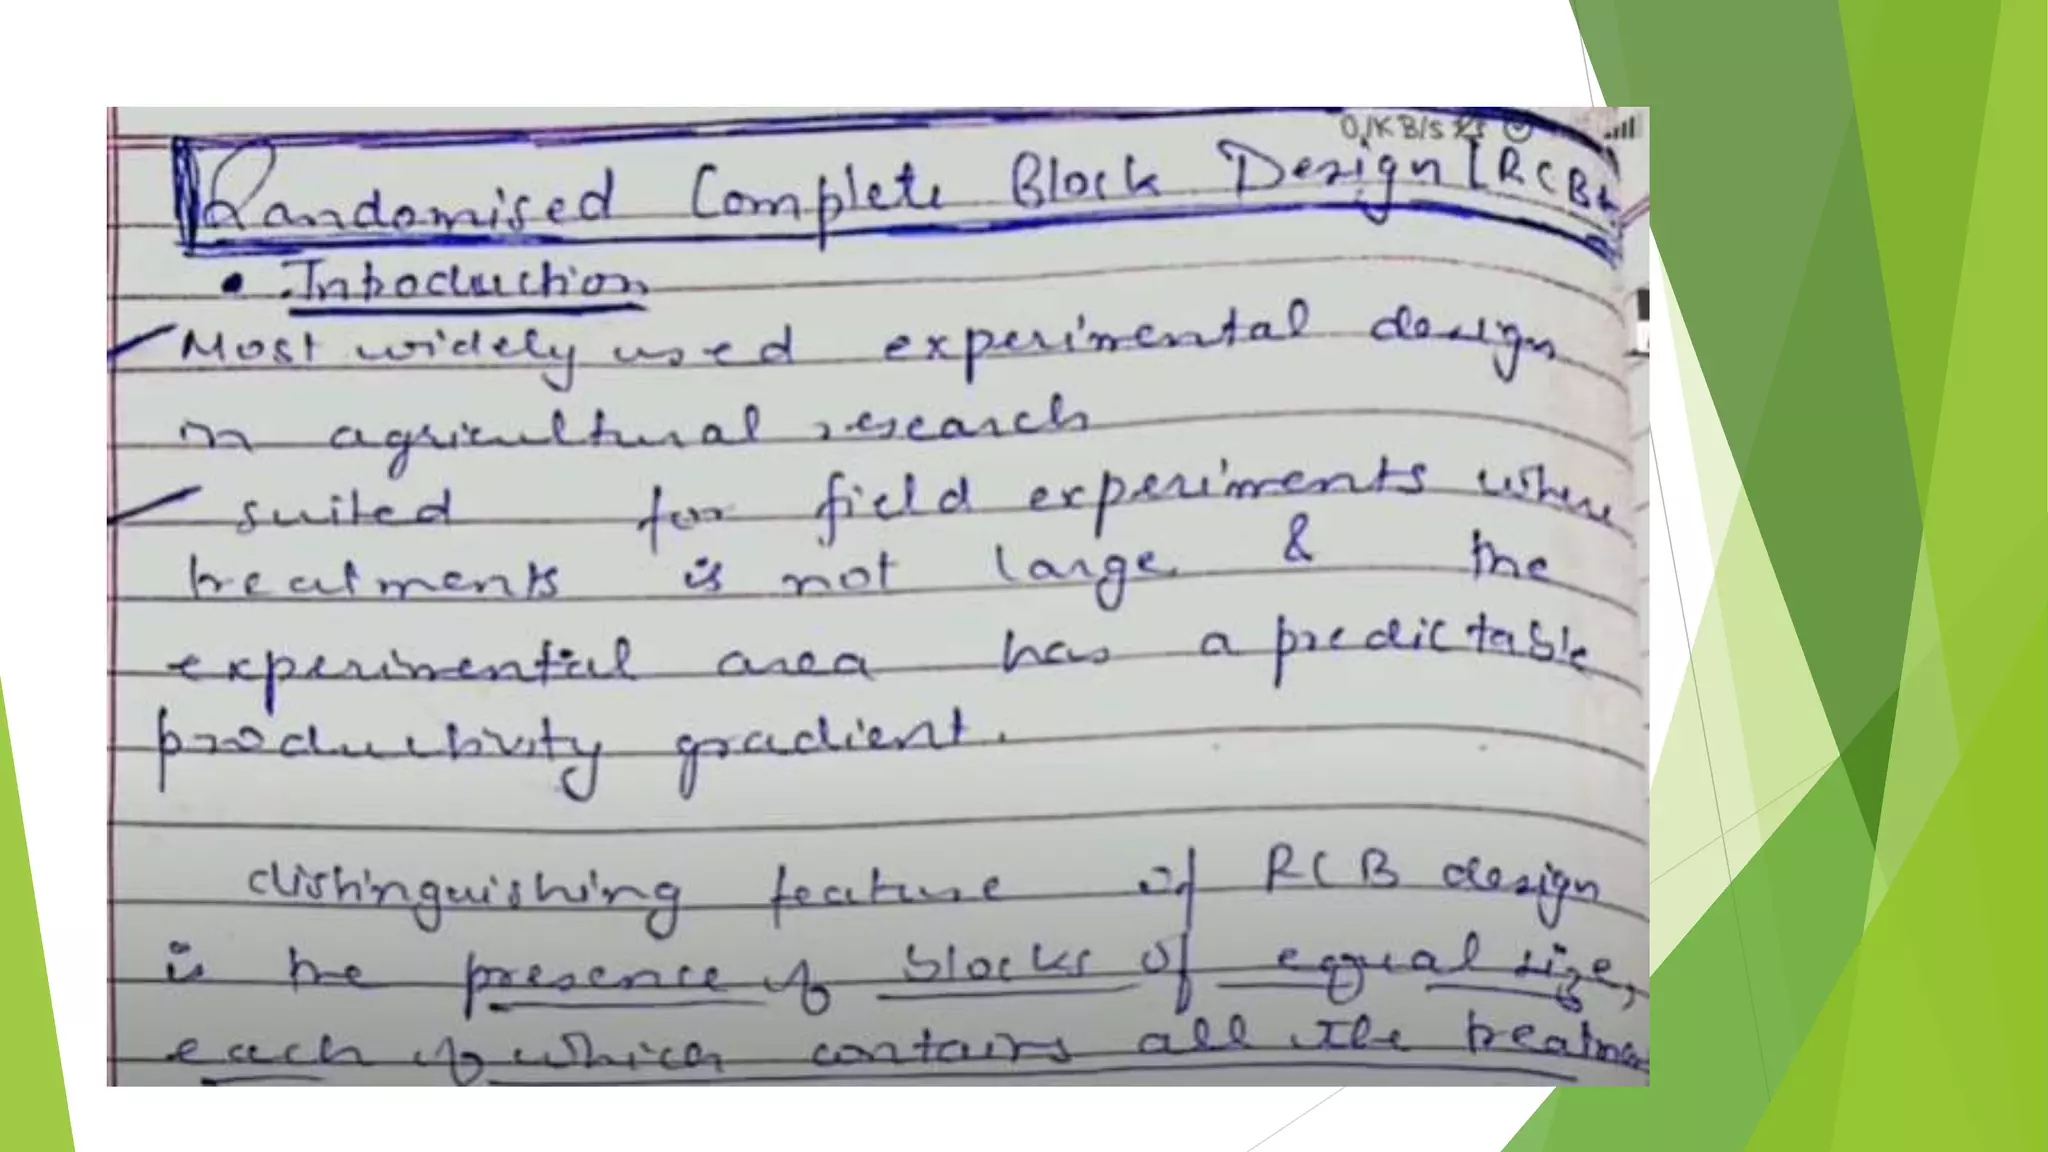 0.1KB/s
Randomised Complete Block Design [RCB
• Introduction
Most widely used experimental design
in agricultural research
suited for field experiments where
treatments is not large & the
experimental area has a predictable
productivity gradient.
distinguishing feature of RCB design
is the presence of blocks of equal size,
each of which contains all the treatmen